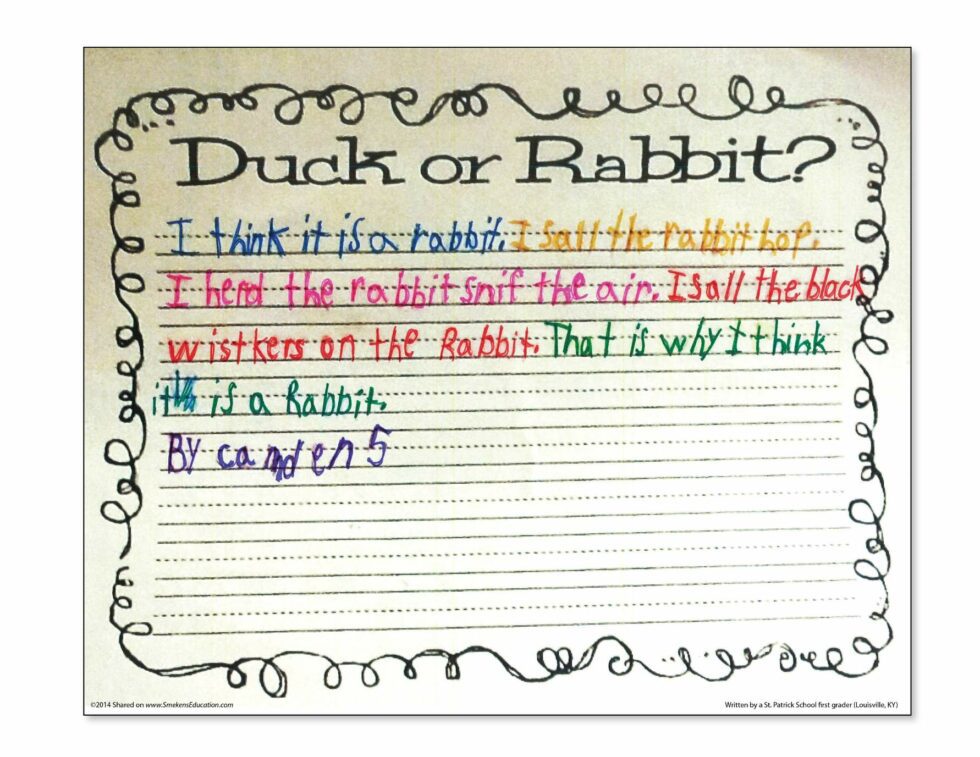 Duck or Rabbit?
I think it is a rabbit. I sall the rabbit hop.
I herd the rabbit snif the air. I sall the black
wistkers on the Rabbit. That is why I think
it is a Rabbit.
By camden 5
©2014 Shared on www.SmekensEducation.com
Written by a St. Patrick School first grader (Louisville, KY)